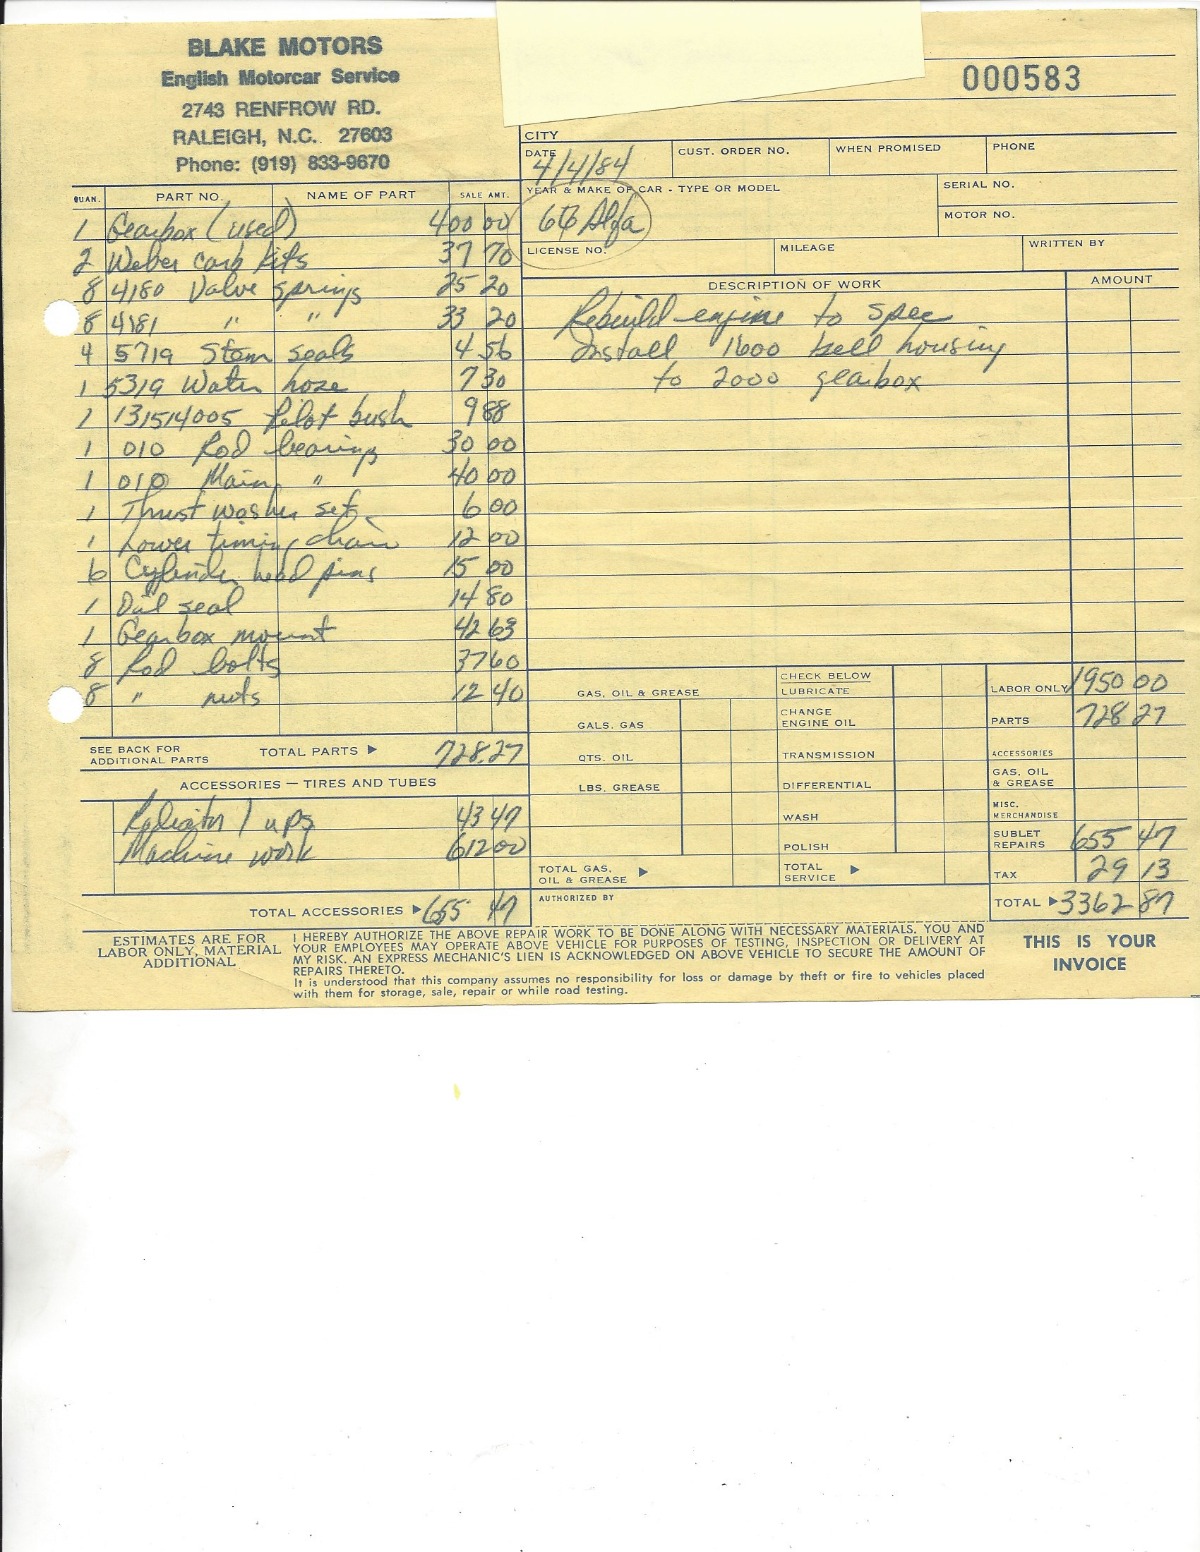 BLAKE MOTORS
English Motorcar Service
2743 RENFROW RD.
RALEIGH, N.C. 27603
Phone: (919) 833-9670
000583
CITY
DATE 4/4/84
CUST. ORDER NO.
WHEN PROMISED
PHONE
YEAR & MAKE OF CAR - TYPE OR MODEL
Alfa
SERIAL NO.
MOTOR NO.
LICENSE NO.
MILEAGE
WRITTEN BY
QUAN. PART NO. NAME OF PART SALE AMT.
1 Gearbox (used) 400 00
2 Weber carb kits 37 70
8 4180 Valve springs 25 20
8 4181 " " 33 20
4 5719 Stem seals 4 56
1 5319 Water hose 7 30
1 131514005 Pilot bush 9 88
1 010 Rod bearings 30 00
1 010 Main " 40 00
1 Thrust washer set 6 00
1 Lower timing chain 12 00
6 Cylinder head pins 15 00
1 Oil seal 14 80
1 Gearbox mount 42 63
8 Rod bolts 37 60
8 " nuts 12 40
SEE BACK FOR ADDITIONAL PARTS
TOTAL PARTS 728.27
ACCESSORIES — TIRES AND TUBES
Radiator / ups 43 47
Machine work 612 00
TOTAL ACCESSORIES 655 47
DESCRIPTION OF WORK
AMOUNT
Rebuild engine to spec
Install 1600 bell housing
to 2000 gearbox
GAS, OIL & GREASE
GALS. GAS
QTS. OIL
LBS. GREASE
TOTAL GAS, OIL & GREASE
CHECK BELOW
LUBRICATE
CHANGE ENGINE OIL
TRANSMISSION
DIFFERENTIAL
WASH
POLISH
TOTAL SERVICE
AUTHORIZED BY
LABOR ONLY 1950 00
PARTS 728 27
ACCESSORIES
GAS, OIL & GREASE
MISC. MERCHANDISE
SUBLET REPAIRS 655 47
TAX 29 13
TOTAL 3362 87
ESTIMATES ARE FOR
LABOR ONLY, MATERIAL
ADDITIONAL
I HEREBY AUTHORIZE THE ABOVE REPAIR WORK TO BE DONE ALONG WITH NECESSARY MATERIALS. YOU AND
YOUR EMPLOYEES MAY OPERATE ABOVE VEHICLE FOR PURPOSES OF TESTING, INSPECTION OR DELIVERY AT
MY RISK. AN EXPRESS MECHANIC'S LIEN IS ACKNOWLEDGED ON ABOVE VEHICLE TO SECURE THE AMOUNT OF
REPAIRS THERETO.
It is understood that this company assumes no responsibility for loss or damage by theft or fire to vehicles placed
with them for storage, sale, repair or while road testing.
THIS IS YOUR
INVOICE